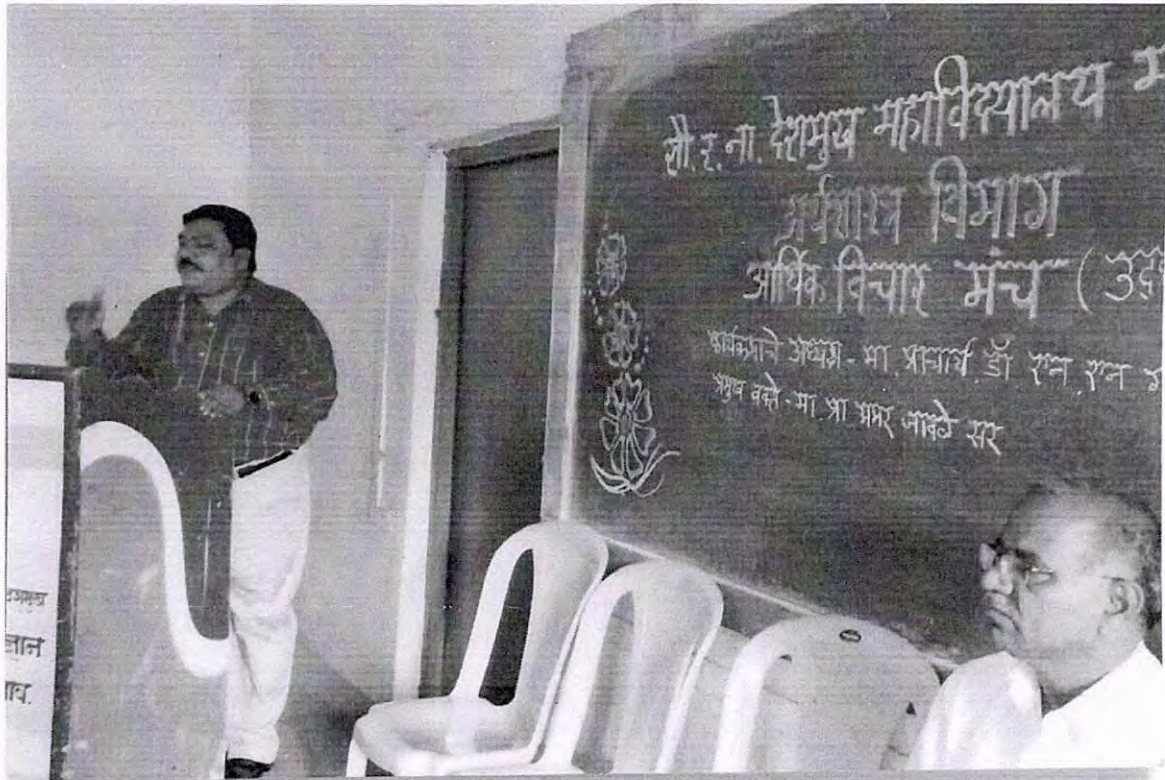 सौ. र. ना. देशमुख महाविद्यालय
अर्थशास्त्र विभाग
आर्थिक विचार मंच (उद्
कार्यक्रमाचे अध्यक्ष - मा. प्राचार्य. डॉ एन. एन
प्रमुख वक्ते - मा. प्रा. सर